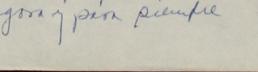 gora y para siempre